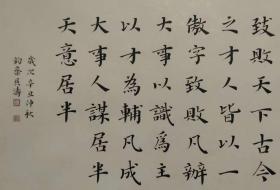 致敗天下古今
之才人皆以一
傲字致敗凡辦
大事以識為主
以才為輔凡成
大事人謀居半
天意居半
歲次辛丑秋